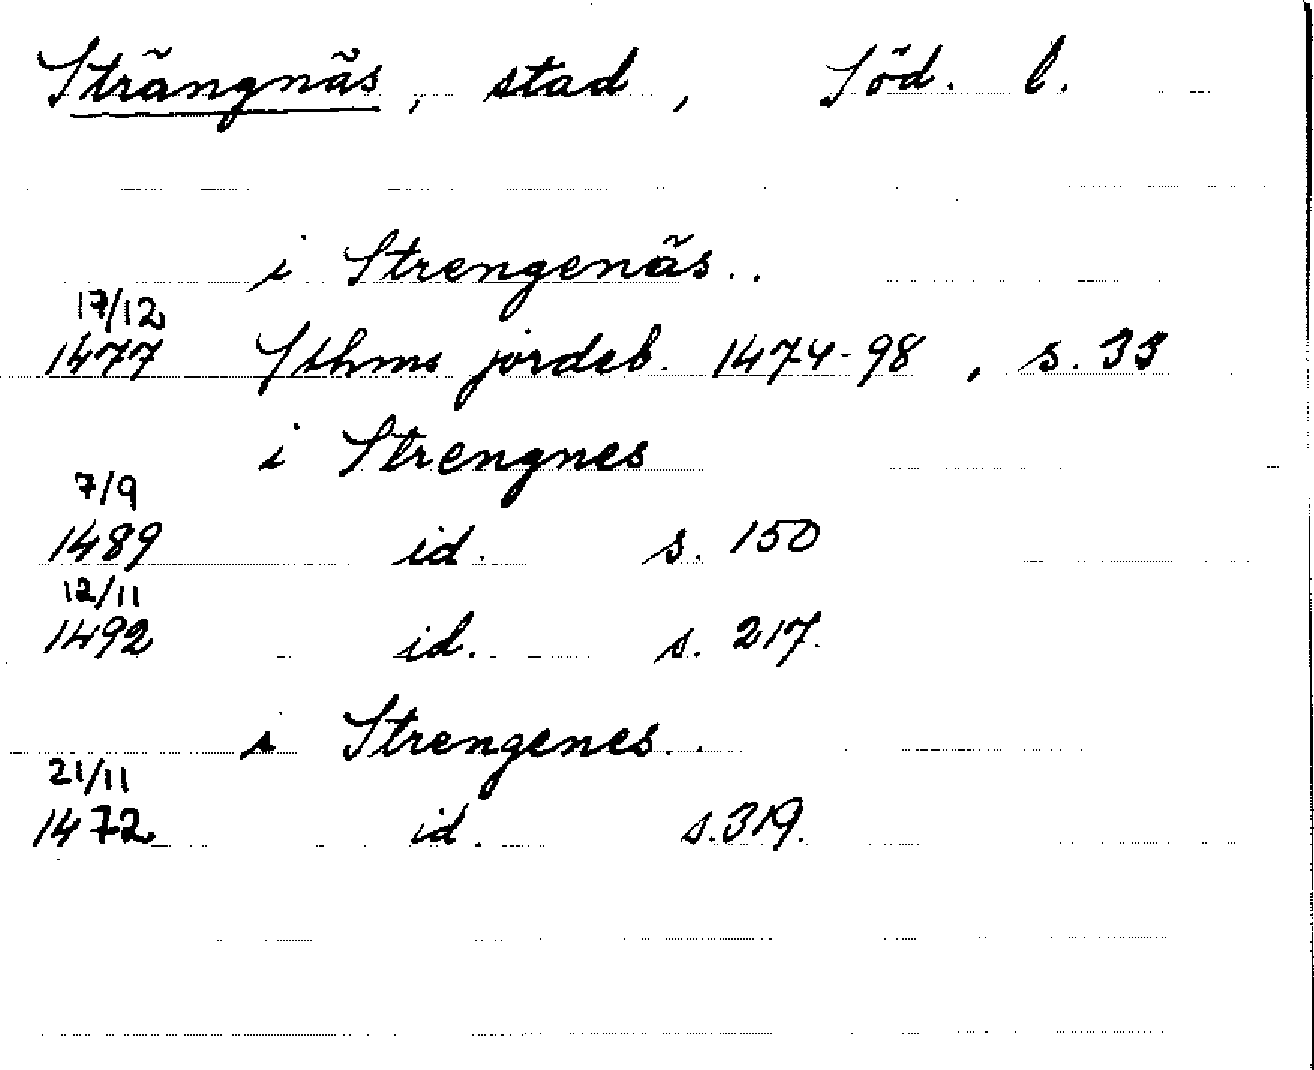 Strängnäs, stad, Söd. l.
i Strengenäs..
17/12
1477 Sthms jordeb. 1474-98, s. 33
i Strengnes
7/9
1489 id. s. 150
12/11
1492 id. s. 217.
i Strengenes..
21/11
1472 id. s. 319.